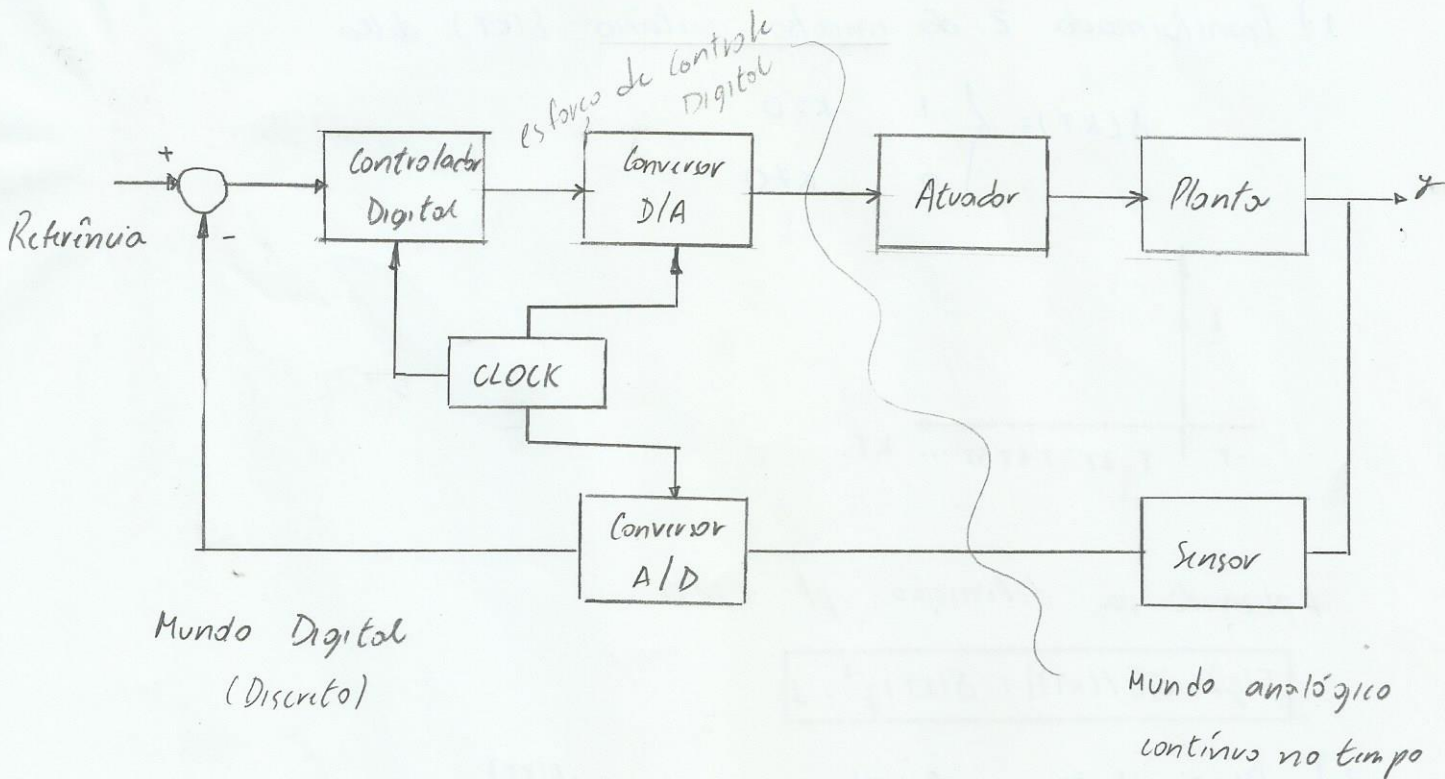 esforço de controle
Digital
+
Controlador
Digital
Conversor
D/A
Atuador
Planta
y
Referência
-
CLOCK
Conversor
A/D
Sensor
Mundo Digital
(Discreto)
Mundo analógico
contínuo no tempo